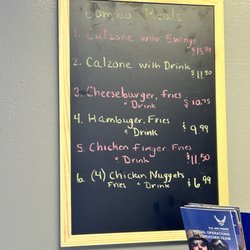 Combo Meals
1. Calzone with 5 wings
$15.99
2. Calzone with Drink
$11.50
3. Cheeseburger, Fries
• Drink $10.75
4. Hambuger, Fries
• Drink $9.99
5. Chicken finger, Fries
• Drink $11.50
6. (4) Chicken Nuggets,
Fries • Drink $6.99
U.S. AIR FORCE
SPECIAL OPERATIONS
WEATHER TEAM